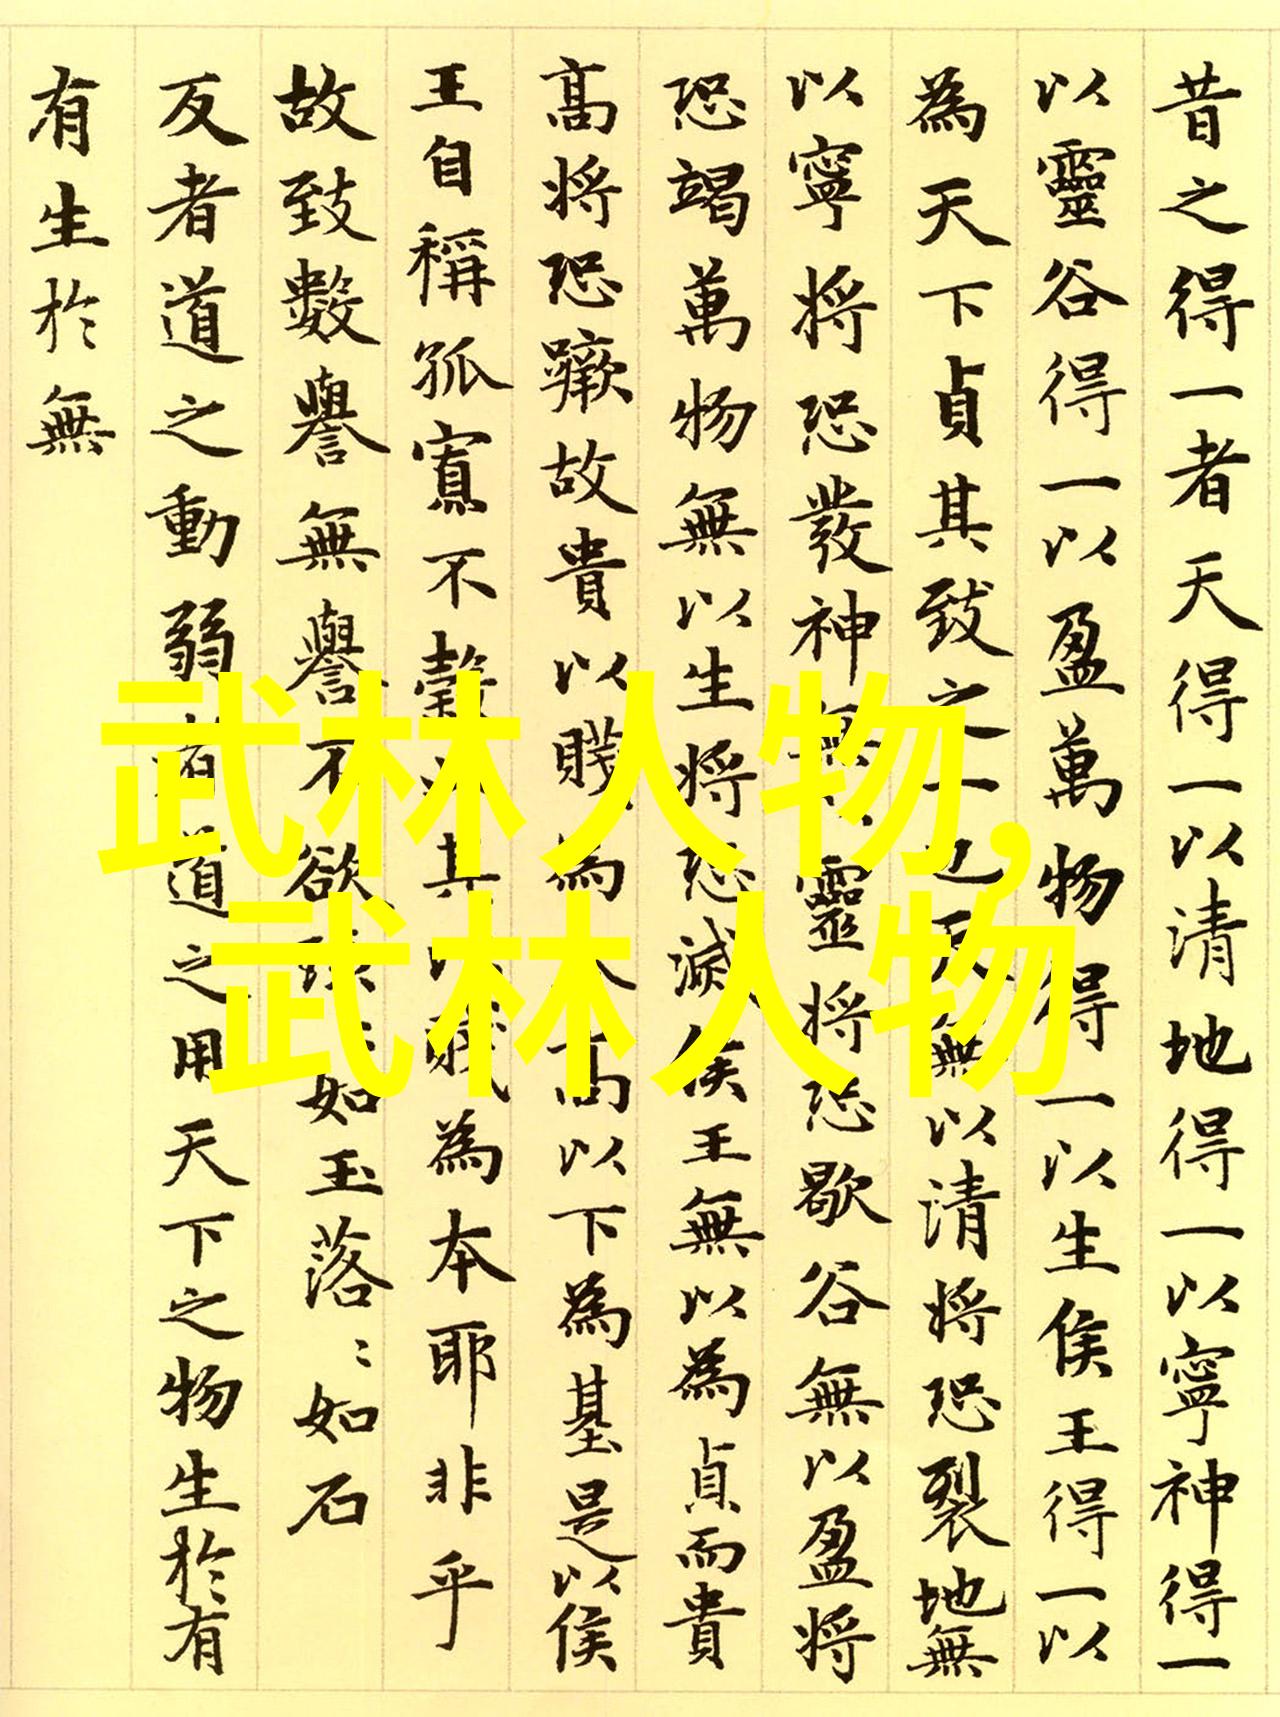 昔之得一者天得一以清地得一以寧神得一
以靈谷得一以盈萬物得一以生侯王得一以
為天下貞其致之一也天無以清將恐裂地無
以寧將恐發神無以靈將恐歇谷無以盈將
恐竭萬物無以生將恐滅侯王無以為貞而貴
高將恐蹶故貴以賤為本高以下為基是以侯
王自稱孤寡不穀其以賤為本耶非乎
故致數譽無譽不欲琭〻如玉落〻如石
反者道之動弱者道之用天下之物生於有
有生於無
武林人物,
武林人物